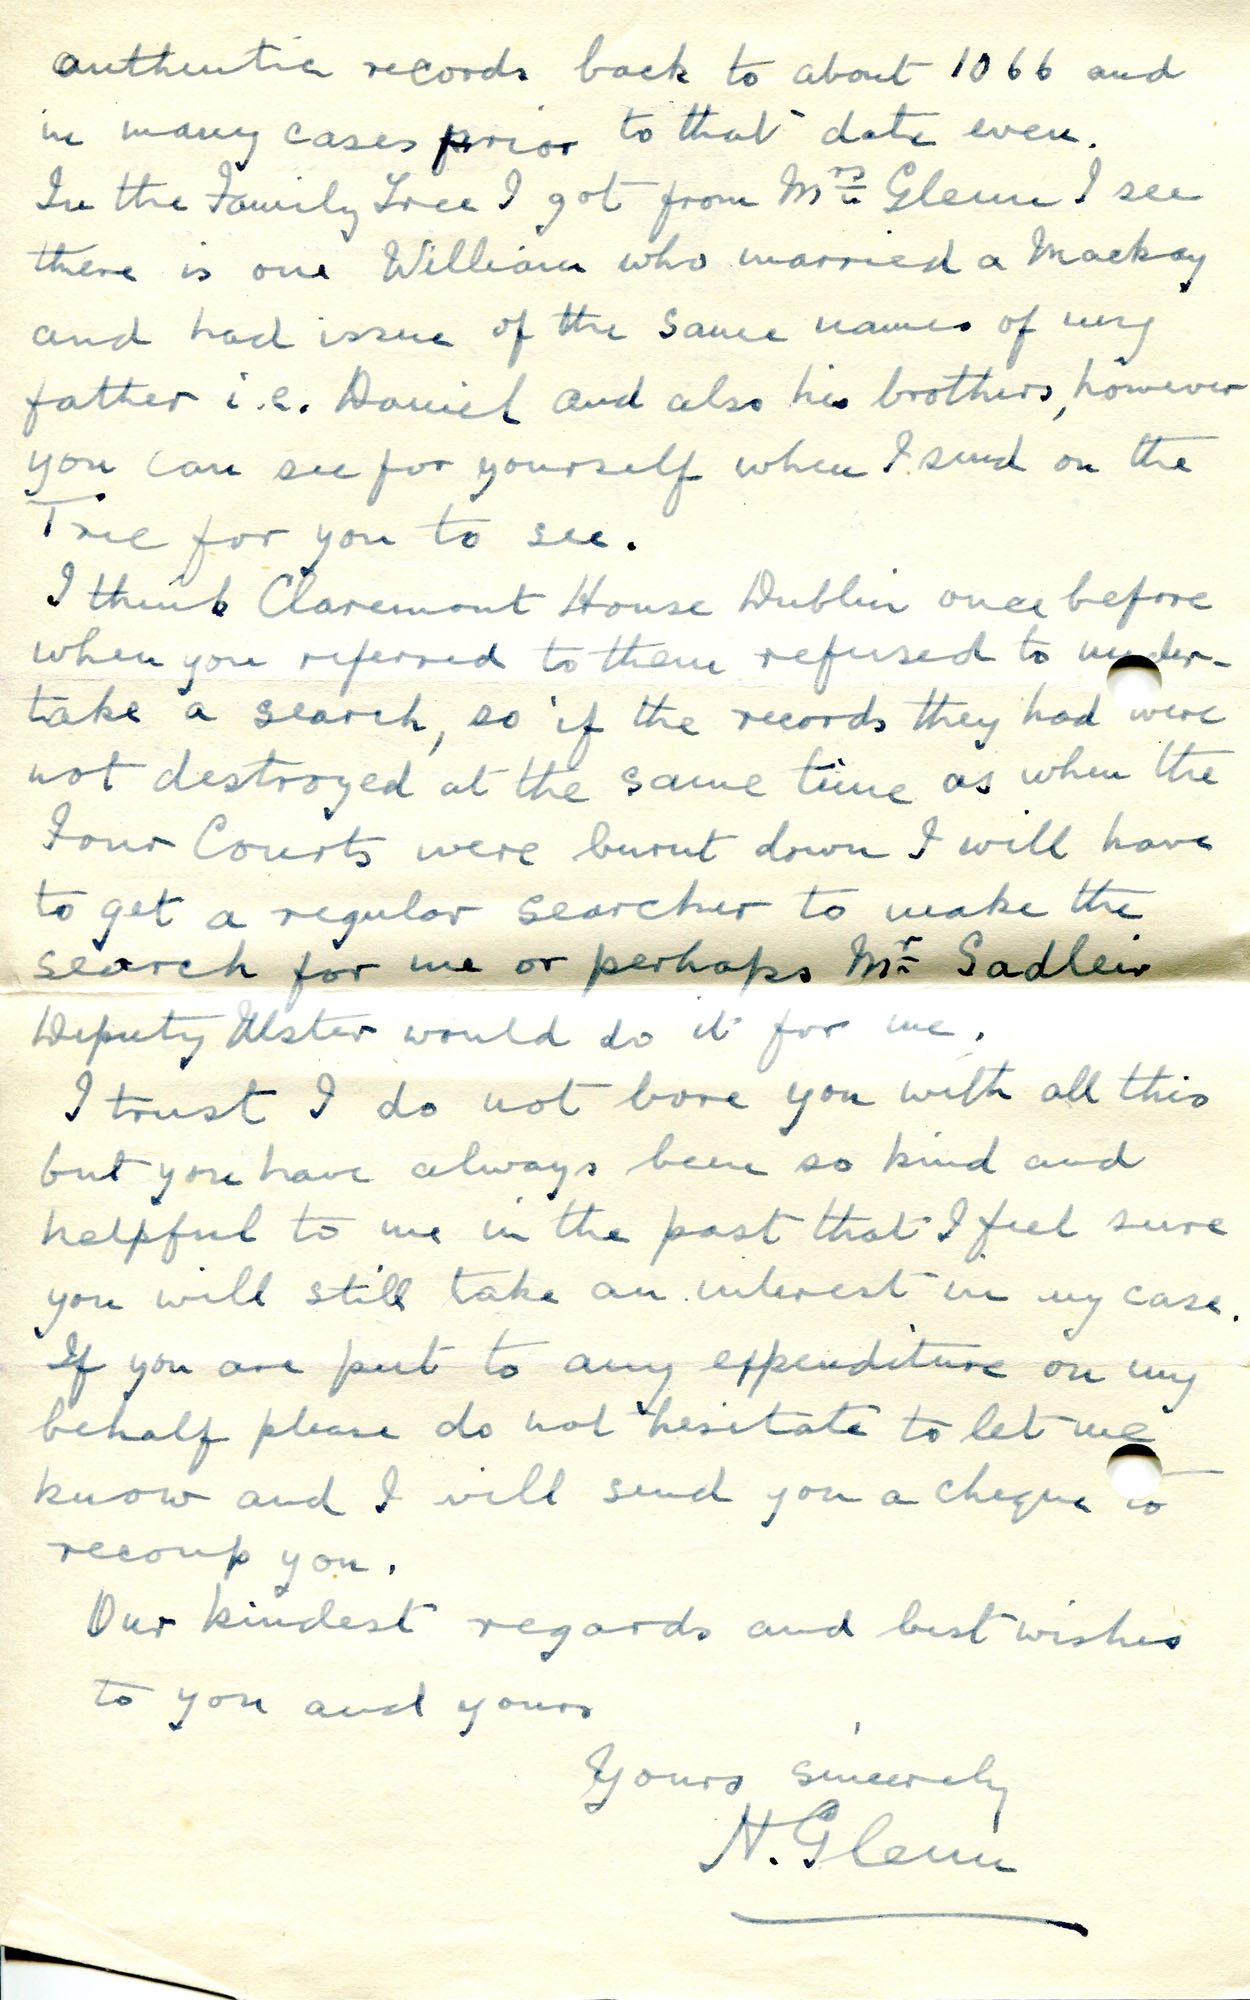 authentic records back to about 1066 and
in many cases prior to that date even.
In the Family Tree I got from Mrs Glenn I see
there is one William who married a Mackay
and had issue of the same names of my
father i.e. Daniel and also his brothers, however
you can see for yourself when I send on the
Tree for you to see.
I think Claremont House Dublin once before
when you referred to them refused to under-
take a search, so if the records they had were
not destroyed at the same time as when the
Four Courts were burnt down I will have
to get a regular searcher to make the
search for me or perhaps Mr Sadleir
Deputy Ulster would do it for me.
I trust I do not bore you with all this
but you have always been so kind and
helpful to me in the past that I feel sure
you will still take an interest in my case.
If you are put to any expenditure on my
behalf please do not hesitate to let me
know and I will send you a cheque to
recoup you.
Our kindest regards and best wishes
to you and yours
Yours sincerely
N. Glenn